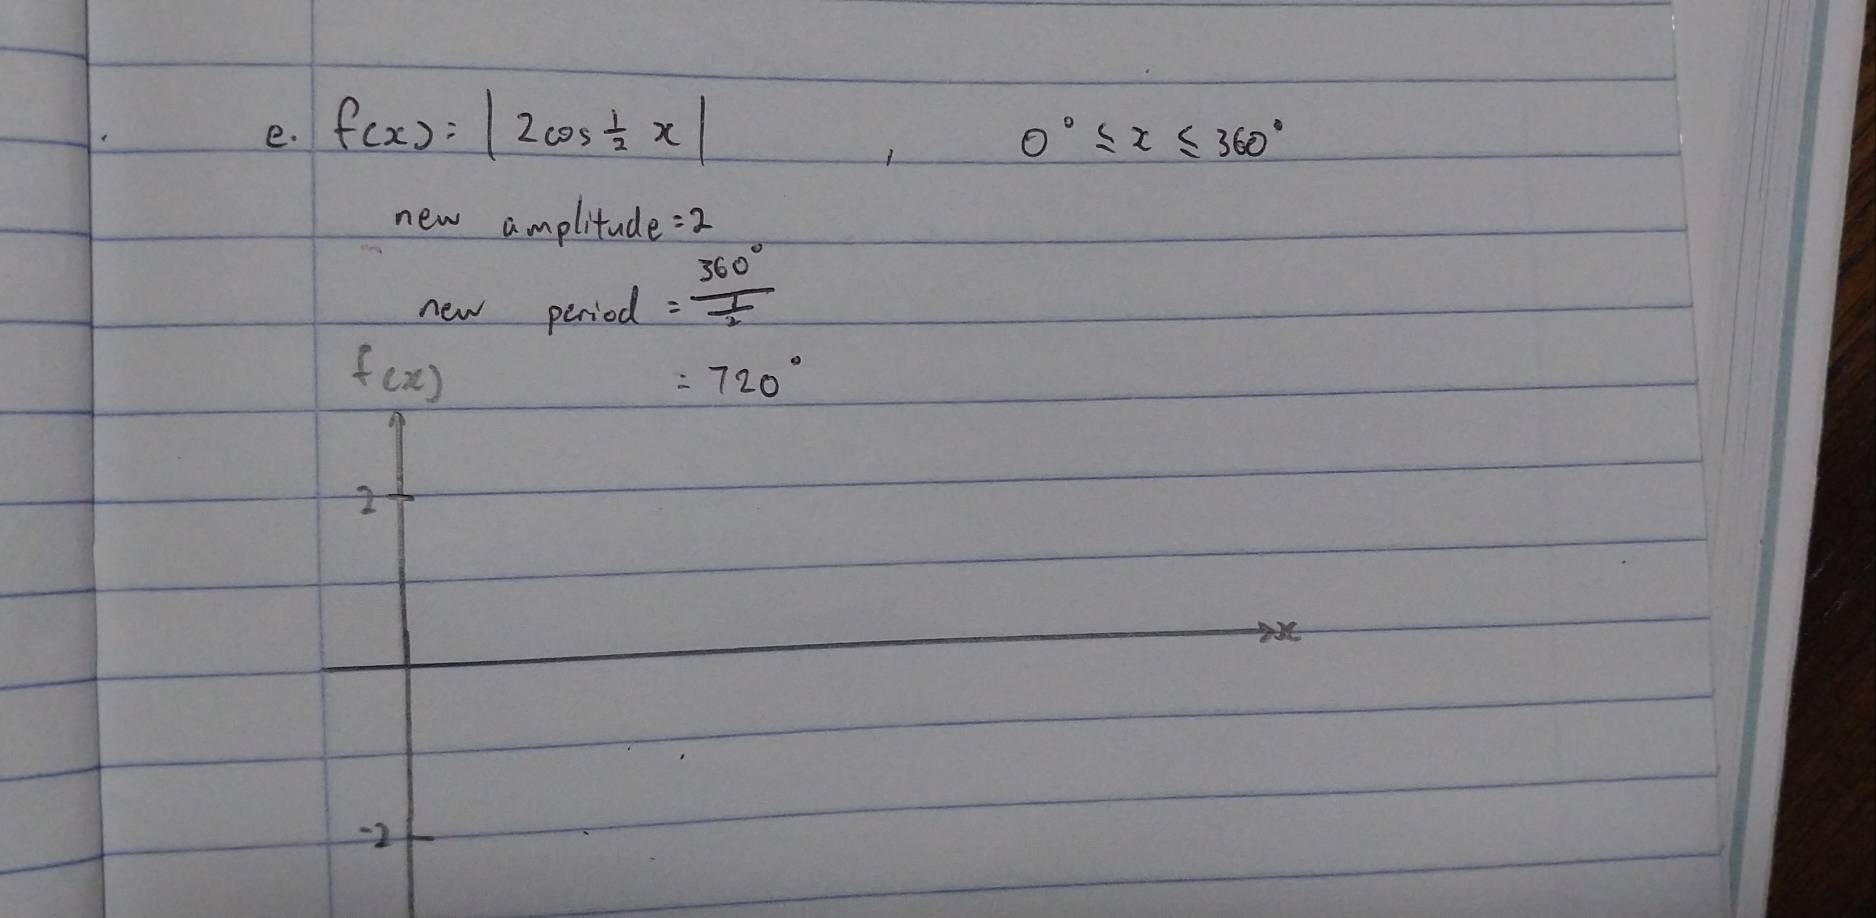 e. f(x) = |2 cos ½ x| , 0° ≤ x ≤ 360°
new amplitude = 2
new period = 360° / ½
f(x) = 720°
2
x
-2